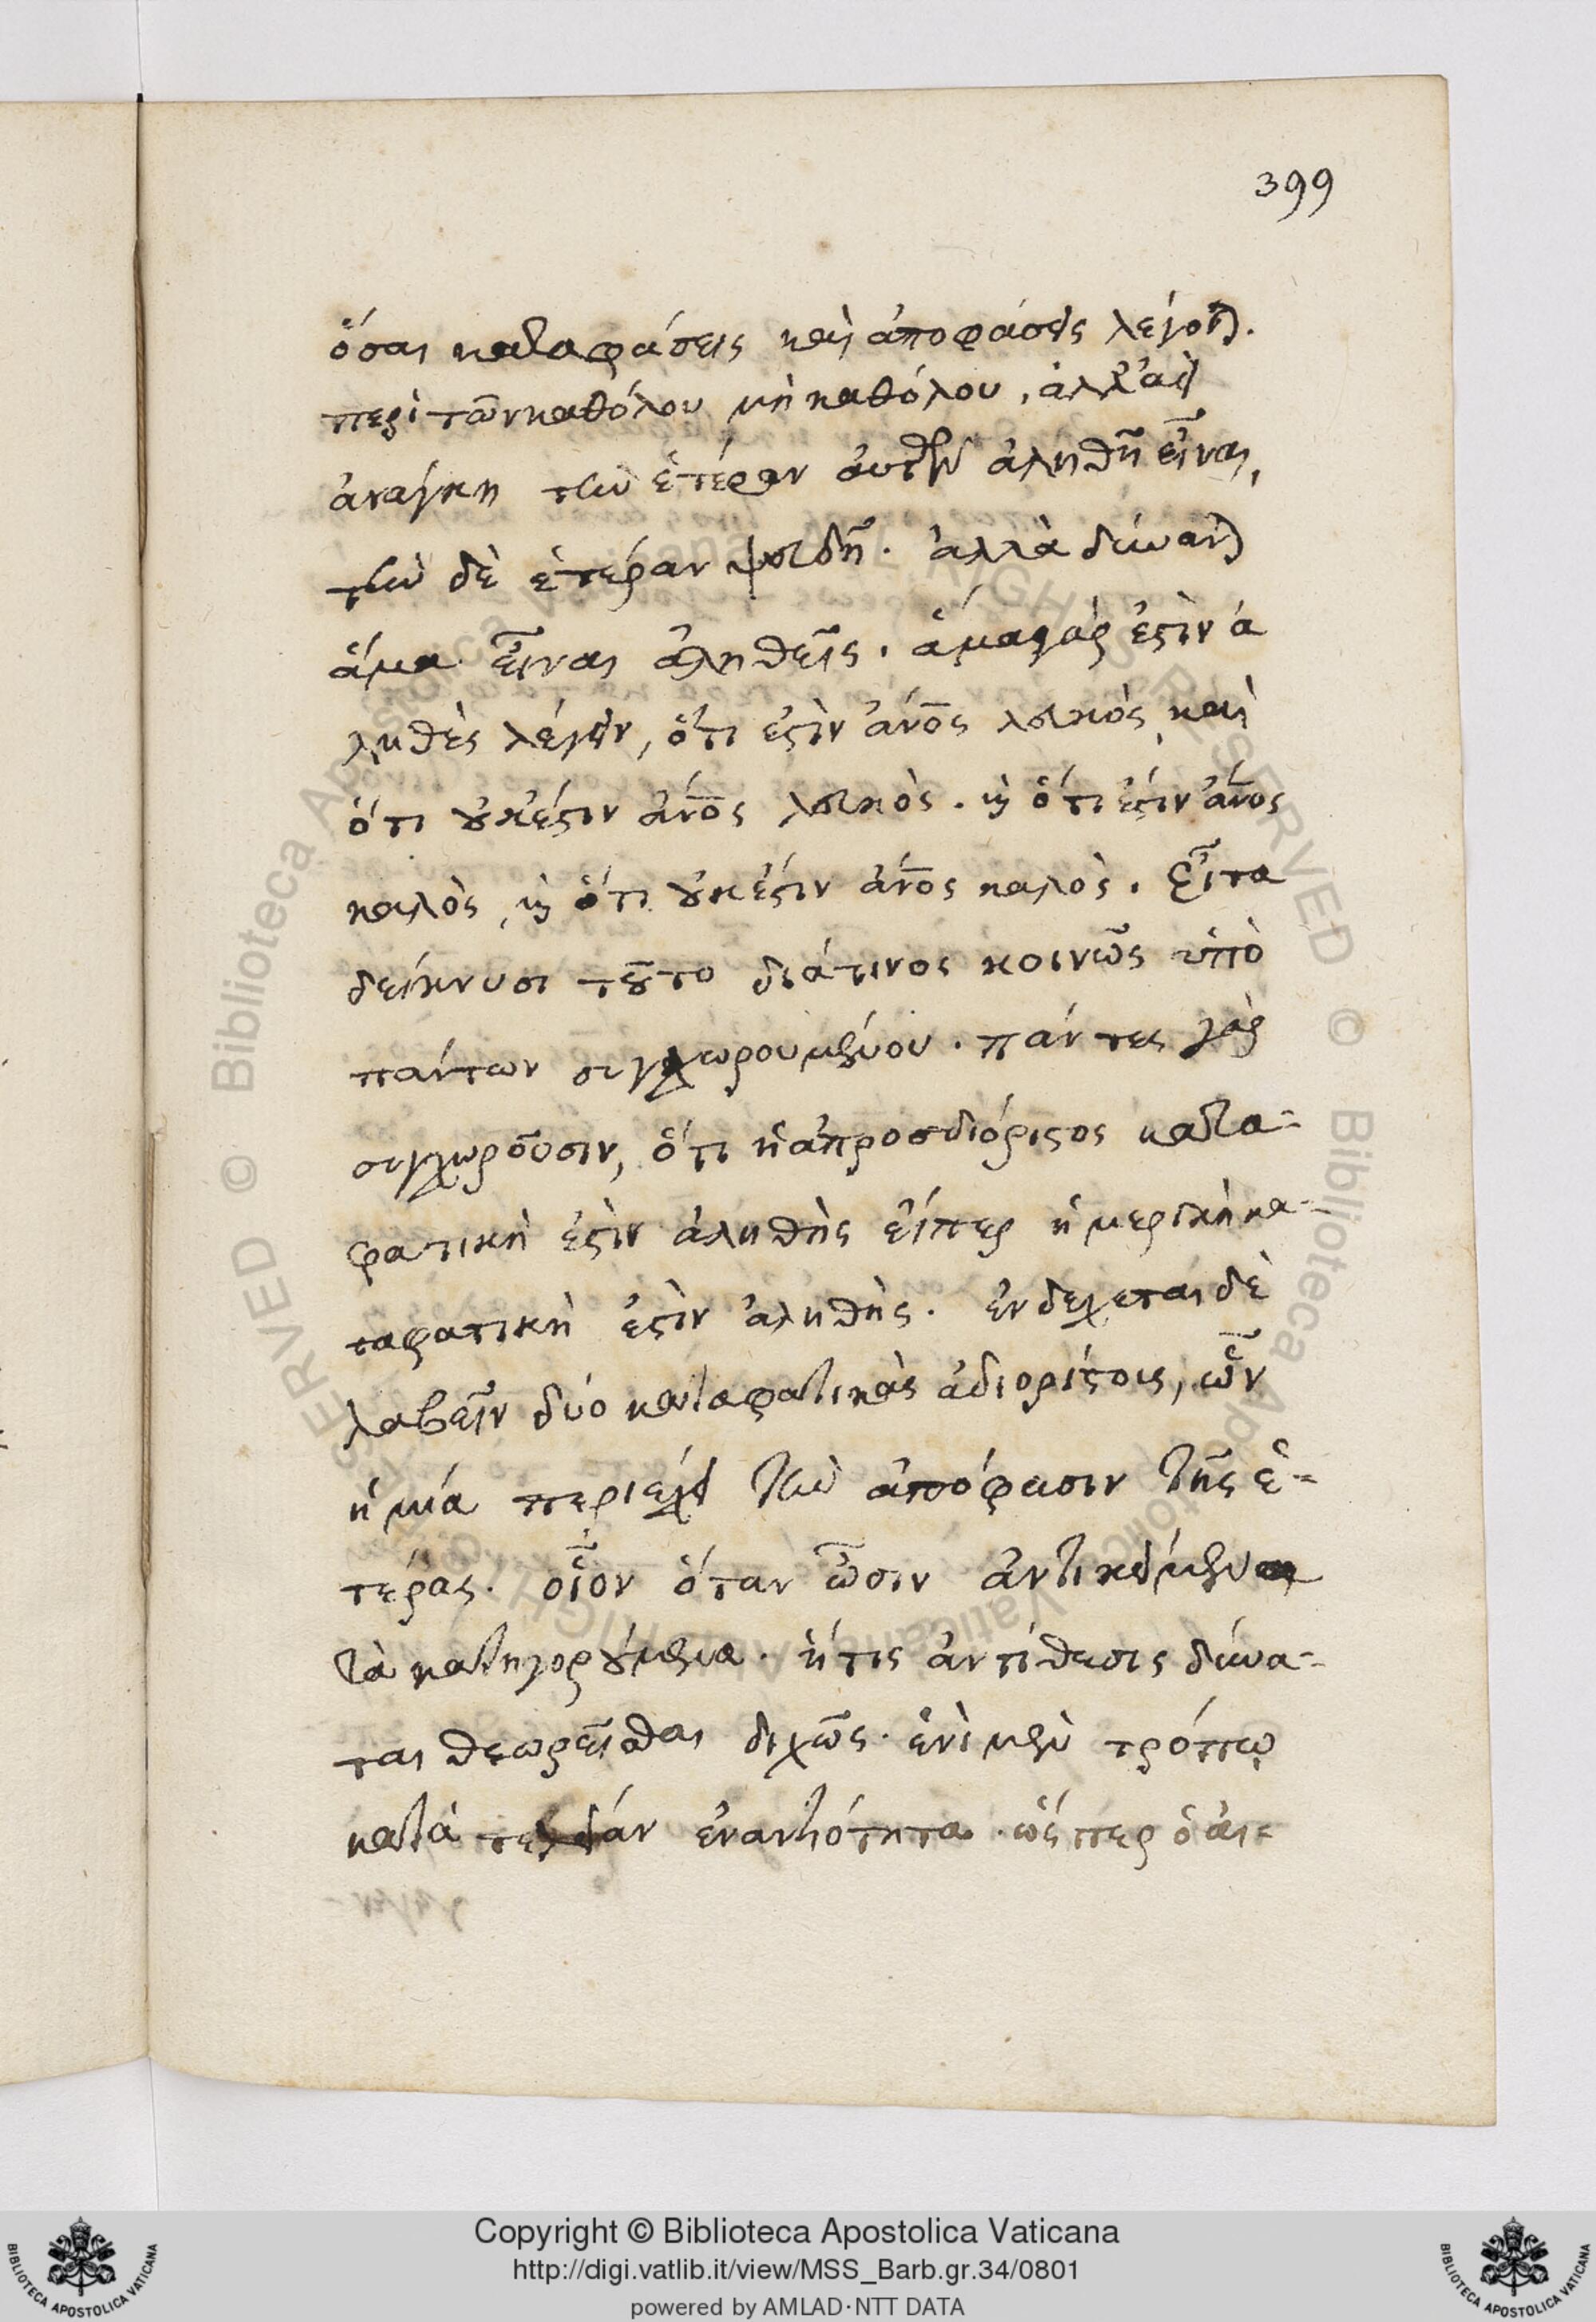 399
ὅσαι καταφάσεις καὶ ἀποφάσεις λέγονται.
περὶ τῶν καθόλου μὴ καθόλου, ἀλλ' ἀεὶ
ἀνάγκη τὴν ἑτέραν αὐτῶν ἀληθῆ εἶναι,
τὴν δὲ ἑτέραν ψευδῆ. ἀλλὰ δύνανται
ἅμα εἶναι ἀληθεῖς. ἅμα γὰρ ἐστὶν ἀ
ληθὲς λέγειν, ὅτι ἐστὶν ἄνος λευκὸς, καὶ
ὅτι οὐκ ἔστιν ἄνος λευκὸς. καὶ ὅτι ἐστιν ἄνος
καλὸς, καὶ ὅτι οὐκ ἔστιν ἄνος καλὸς. Εἶτα
δείκνυσι τοῦτο διά τινος κοινῶς ὑπὸ
πάντων συγχωρουμένου. πάντες γὰρ
συγχωροῦσιν, ὅτι ἡ ἀπροσδιόριστος κατα-
φατικὴ ἐστὶν ἀληθὴς εἴπερ ἡ μερικὴ κα-
ταφατικὴ ἐστὶν ἀληθὴς. ἐνδέχεται δὲ
λαβεῖν δύο καταφατικὰς ἀδιορίστους, ὧν
ἡ μία περιέχει τὴν ἀπόφασιν τῆς ἑ-
τέρας. οἷον ὅταν ὦσιν ἀντικείμενα
τὰ κατηγορούμενα. ἥτις ἀντίθεσις δύνα-
ται θεωρεῖσθαι διχῶς. ἑνὶ μὲν τρόπῳ
κατὰ τελείαν ἐναντιότητα. ὥσπερ ὁ αι-
Copyright © Biblioteca Apostolica Vaticana
http://digi.vatlib.it/view/MSS_Barb.gr.34/0801
powered by AMLAD·NTT DATA